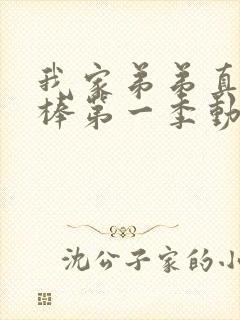 我家弟弟真
棒第一季动
沈公子家的小